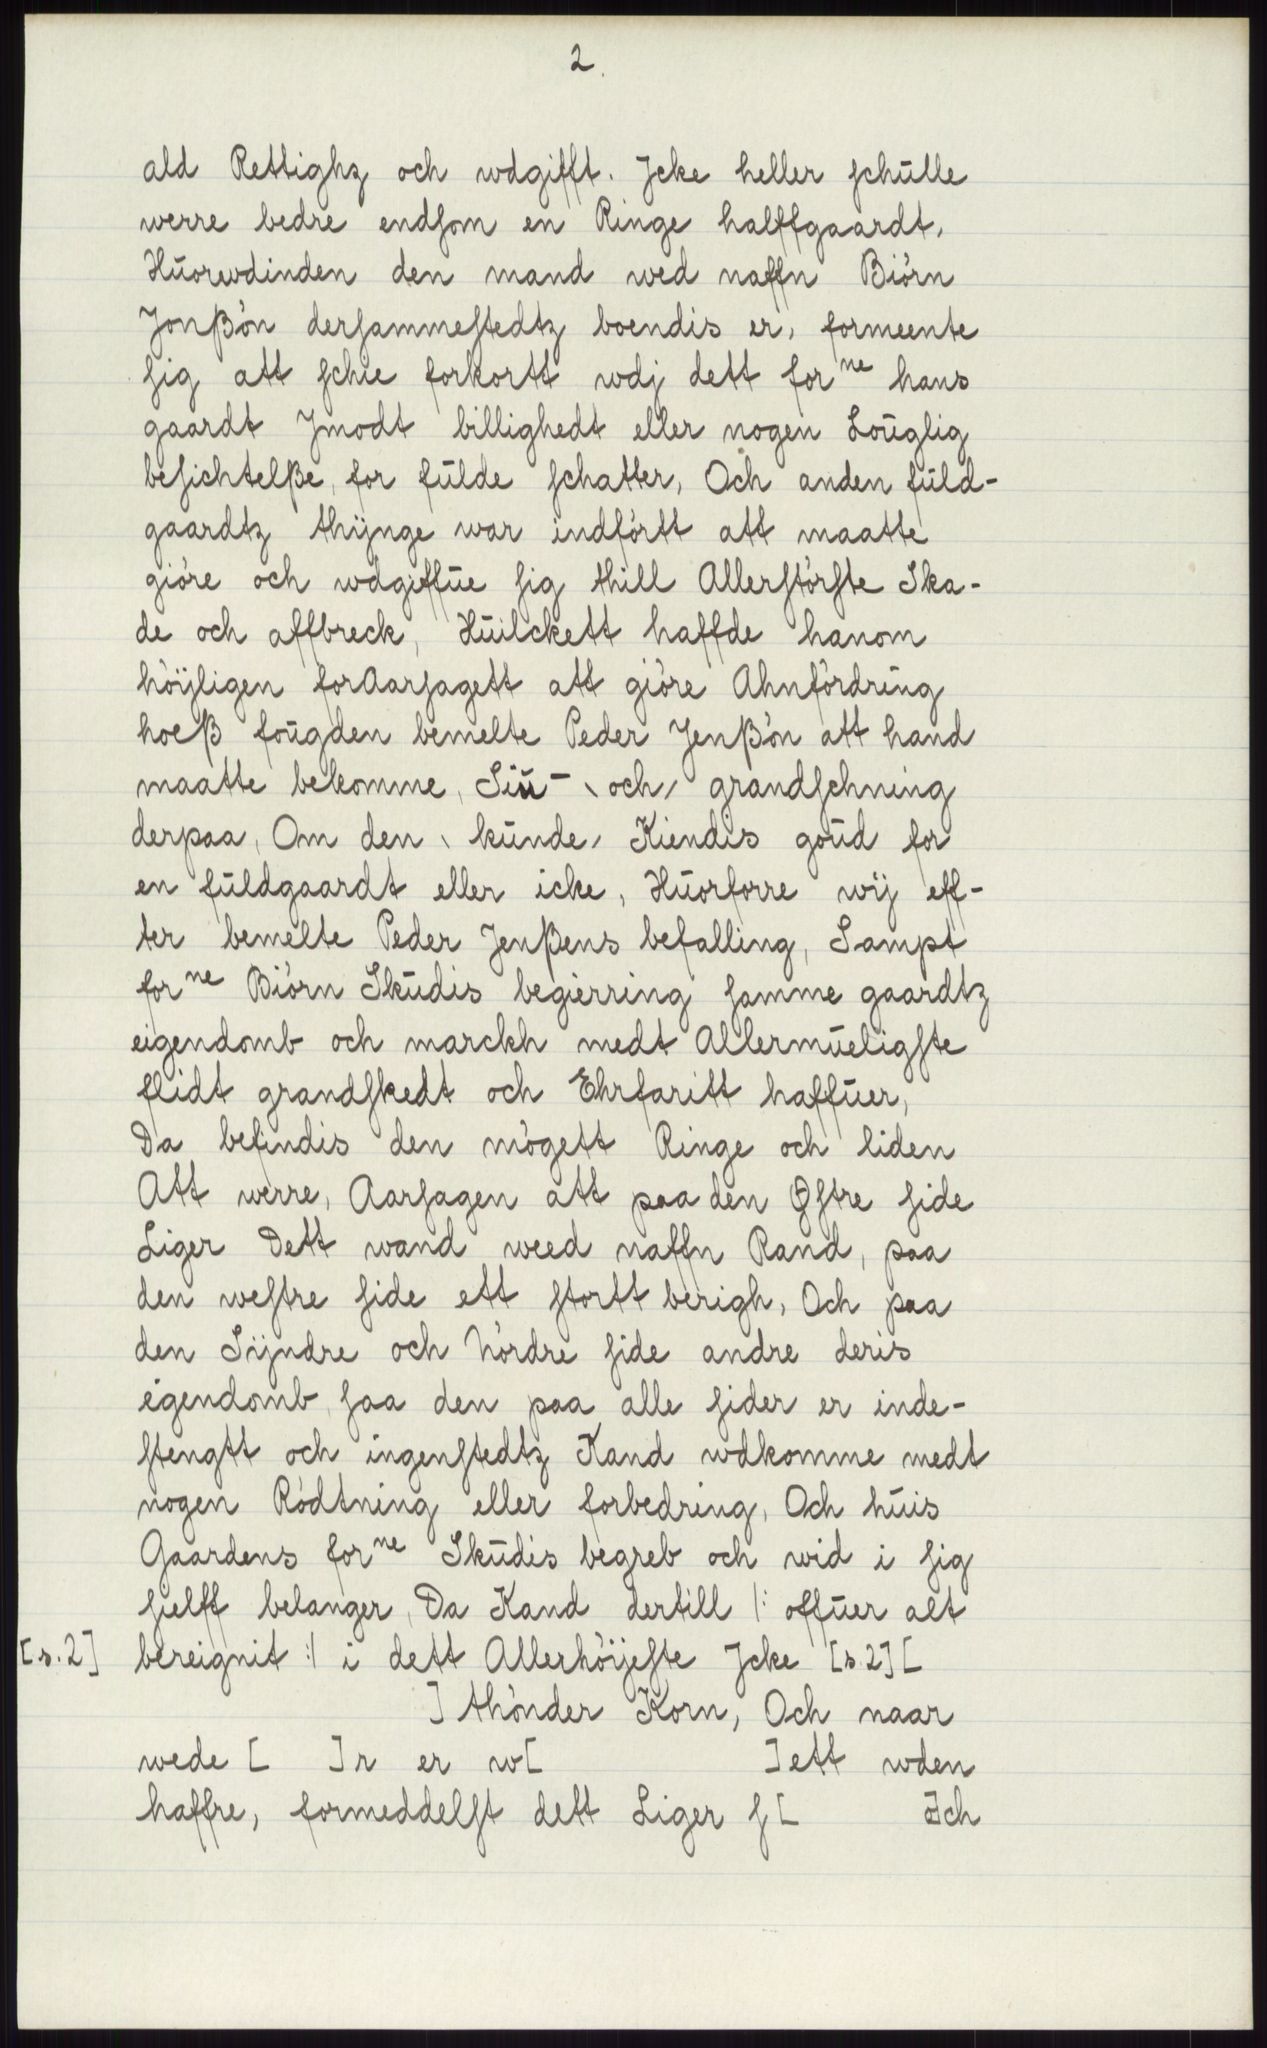 2.
ald Rettighz och wdgifft. Jcke heller schulle
werre bedre endsom en Ringe halffgaardt,
Huorwdinden den mand wed naffn Biörn
Jonßön dersammestedtz boendis er, formeente
sig att schie forkortt wdj dett forne hans
gaardt Jmodt billighedt eller nogen Louglig
besichtelße, for fulde schatter, Och anden fuld-
gaardtz thÿnge war indförtt att maatte
giöre och wdgiffue sig thill Allerstörste Ska-
de och affbreck, Huilckett haffde hanom
höÿligen forAarsagett att giöre Ahnfördring
hoeß fougden bemelte Peder Jenßön att hand
maatte bekomme, Siu- \ och / grandschning
derpaa, Om den \ kunde / Kiendis goud for
en fuldgaardt eller icke, Huorforre wÿ eff-
ter bemelte Peder Jenßens befalling, Sampt
forne Biörn Skudis begierring samme gaardtz
eigendomb och marckh medt Allermueligste
flidt grandskedt och Ehrfaritt haffuer,
Da befindis den mögett Ringe och liden
Att werre, Aarsagen att paa den Østre side
Liger Dett wand weed naffn Rand, paa
den westre side ett stortt berigh, Och paa
den Sÿndre och Nördre side andre deris
eigendomb, saa den paa alle sider er inde-
stengtt och ingenstedtz Kand wdkomme medt
nogen Rödtning eller forbedring, Och huis
Gaardens forne Skudis begreb och wid i sig
sielff belanger, Da Kand dertill /: offuer alt
[s.2] bereignit :/ i dett Allerhöÿeste Jcke [s.2] [
] thönder Korn, Och naar
wede [ ]r er w[ ]ett wden
haffre, formeddelst dett Liger s[ ]ch